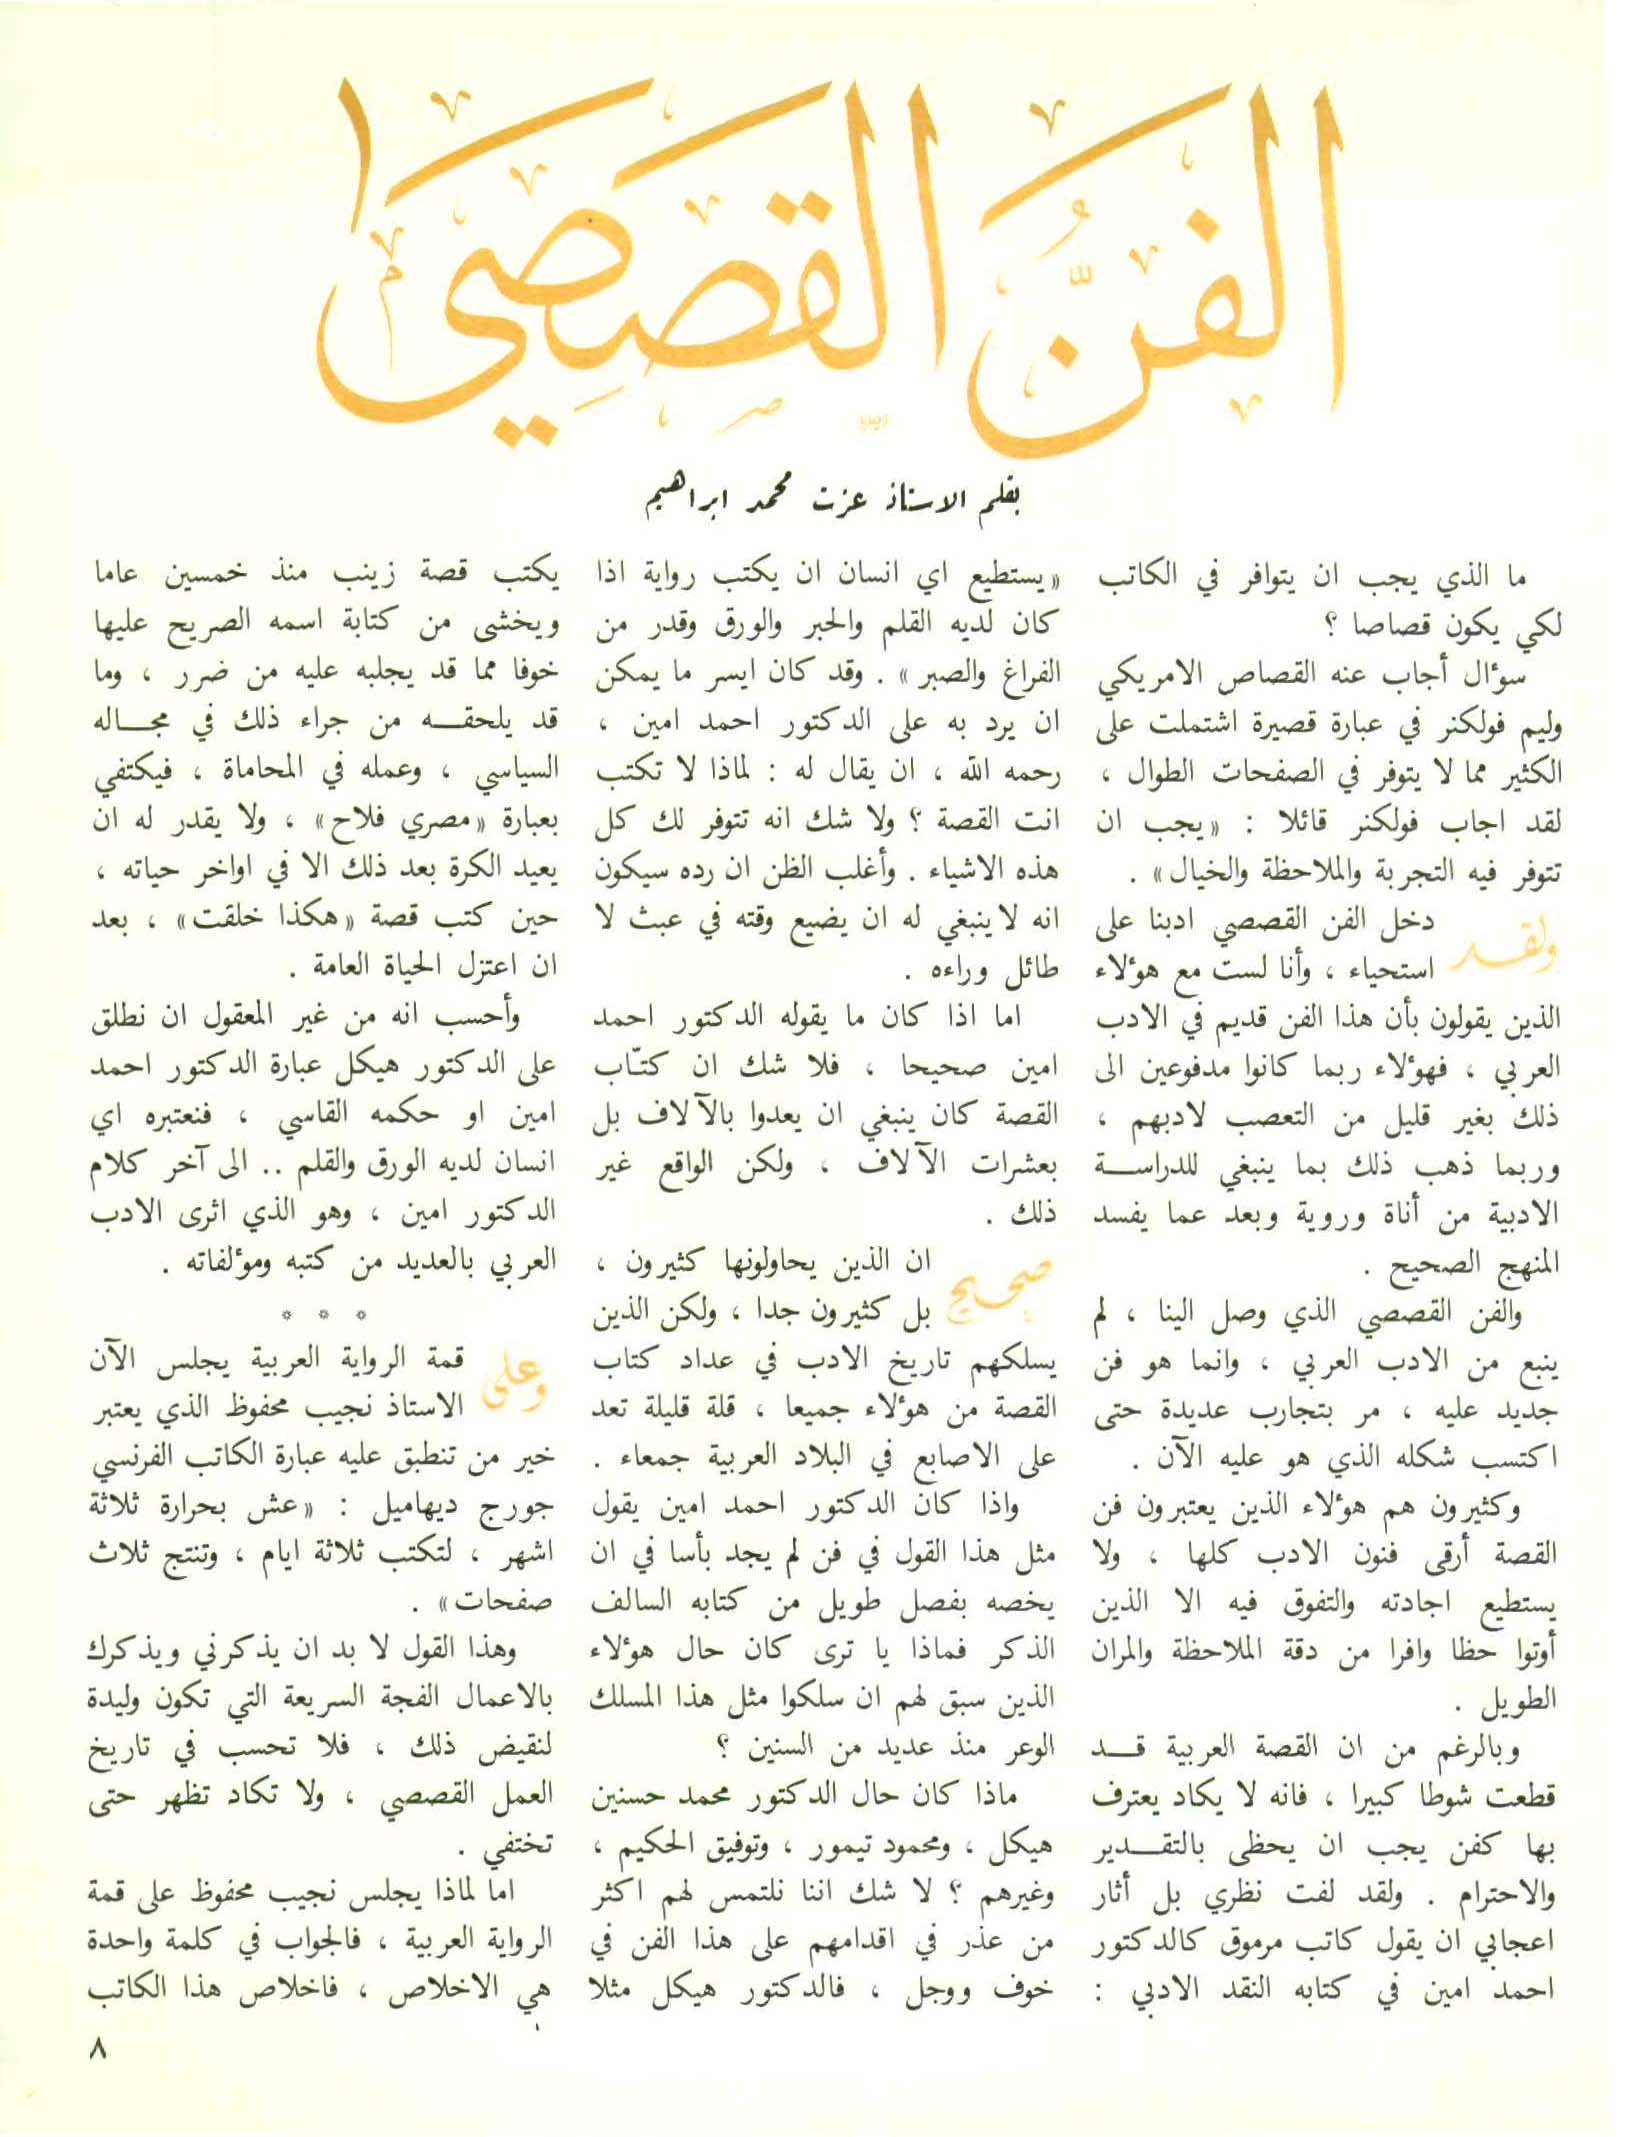 الفن القصصي
بقلم الاستاذ عزت محمد ابراهيم
ما الذي يجب ان يتوافر في الكاتب
لكي يكون قصاصا ؟
سؤال أجاب عنه القصاص الامريكي
وليم فولكنر في عبارة قصيرة اشتملت على
الكثير مما لا يتوفر في الصفحات الطوال ،
لقد اجاب فولكنر قائلا : «يجب ان
تتوفر فيه التجربة والملاحظة والخيال» .
ولقد دخل الفن القصصي ادبنا على
استحياء ، وأنا لست مع هؤلاء
الذين يقولون بأن هذا الفن قديم في الادب
العربي ، فهؤلاء ربما كانوا مدفوعين الى
ذلك بغير قليل من التعصب لادبهم ،
وربما ذهب ذلك بما ينبغي للدراسة
الادبية من أناة وروية وبعد عما يفسد
المنهج الصحيح .
والفن القصصي الذي وصل الينا ، لم
ينبع من الادب العربي ، وانما هو فن
جديد عليه ، مر بتجارب عديدة حتى
اكتسب شكله الذي هو عليه الآن .
وكثيرون هم هؤلاء الذين يعتبرون فن
القصة أرقى فنون الادب كلها ، ولا
يستطيع اجادته والتفوق فيه الا الذين
أوتوا حظا وافرا من دقة الملاحظة والمران
الطويل .
وبالرغم من ان القصة العربية قد
قطعت شوطا كبيرا ، فانه لا يكاد يعترف
بها كفن يجب ان يحظى بالتقدير
والاحترام . ولقد لفت نظري بل أثار
اعجابي ان يقول كاتب مرموق كالدكتور
احمد امين في كتابه النقد الادبي :
«يستطيع اي انسان ان يكتب رواية اذا
كان لديه القلم والحبر والورق وقدر من
الفراغ والصبر» . وقد كان ايسر ما يمكن
ان يرد به على الدكتور احمد امين ،
رحمه الله ، ان يقال له : لماذا لا تكتب
انت القصة ؟ ولا شك انه تتوفر لك كل
هذه الاشياء . وأغلب الظن ان رده سيكون
انه لا ينبغي له ان يضيع وقته في عبث لا
طائل وراءه .
اما اذا كان ما يقوله الدكتور احمد
امين صحيحا ، فلا شك ان كتّاب
القصة كان ينبغي ان يعدوا بالآلاف بل
بعشرات الآلاف ، ولكن الواقع غير
ذلك .
صحيح ان الذين يحاولونها كثيرون ،
بل كثيرون جدا ، ولكن الذين
يسلكهم تاريخ الادب في عداد كتاب
القصة من هؤلاء جميعا ، قلة قليلة تعد
على الاصابع في البلاد العربية جمعاء .
واذا كان الدكتور احمد امين يقول
مثل هذا القول في فن لم يجد بأسا في ان
يخصه بفصل طويل من كتابه السالف
الذكر فماذا يا ترى كان حال هؤلاء
الذين سبق لهم ان سلكوا مثل هذا المسلك
الوعر منذ عديد من السنين ؟
ماذا كان حال الدكتور محمد حسنين
هيكل ، ومحمود تيمور ، وتوفيق الحكيم ،
وغيرهم ؟ لا شك اننا نلتمس لهم اكثر
من عذر في اقدامهم على هذا الفن في
خوف ووجل ، فالدكتور هيكل مثلا
يكتب قصة زينب منذ خمسين عاما
ويخشى من كتابة اسمه الصريح عليها
خوفا مما قد يجلبه عليه من ضرر ، وما
قد يلحقه من جراء ذلك في مجاله
السياسي ، وعمله في المحاماة ، فيكتفي
بعبارة «مصري فلاح» ، ولا يقدر له ان
يعيد الكرة بعد ذلك الا في اواخر حياته ،
حين كتب قصة «هكذا خلقت» ، بعد
ان اعتزل الحياة العامة .
وأحسب انه من غير المعقول ان نطلق
على الدكتور هيكل عبارة الدكتور احمد
امين او حكمه القاسي ، فنعتبره اي
انسان لديه الورق والقلم .. الى آخر كلام
الدكتور امين ، وهو الذي اثرى الادب
العربي بالعديد من كتبه ومؤلفاته .
* * *
وعلى قمة الرواية العربية يجلس الآن
الاستاذ نجيب محفوظ الذي يعتبر
خير من تنطبق عليه عبارة الكاتب الفرنسي
جورج ديهاميل : «عش بحرارة ثلاثة
اشهر ، لتكتب ثلاثة ايام ، وتنتج ثلاث
صفحات» .
وهذا القول لا بد ان يذكرني ويذكرك
بالاعمال الفجة السريعة التي تكون وليدة
لنقيض ذلك ، فلا تحسب في تاريخ
العمل القصصي ، ولا تكاد تظهر حتى
تختفي .
اما لماذا يجلس نجيب محفوظ على قمة
الرواية العربية ، فالجواب في كلمة واحدة
هي الاخلاص ، فاخلاص هذا الكاتب
٨